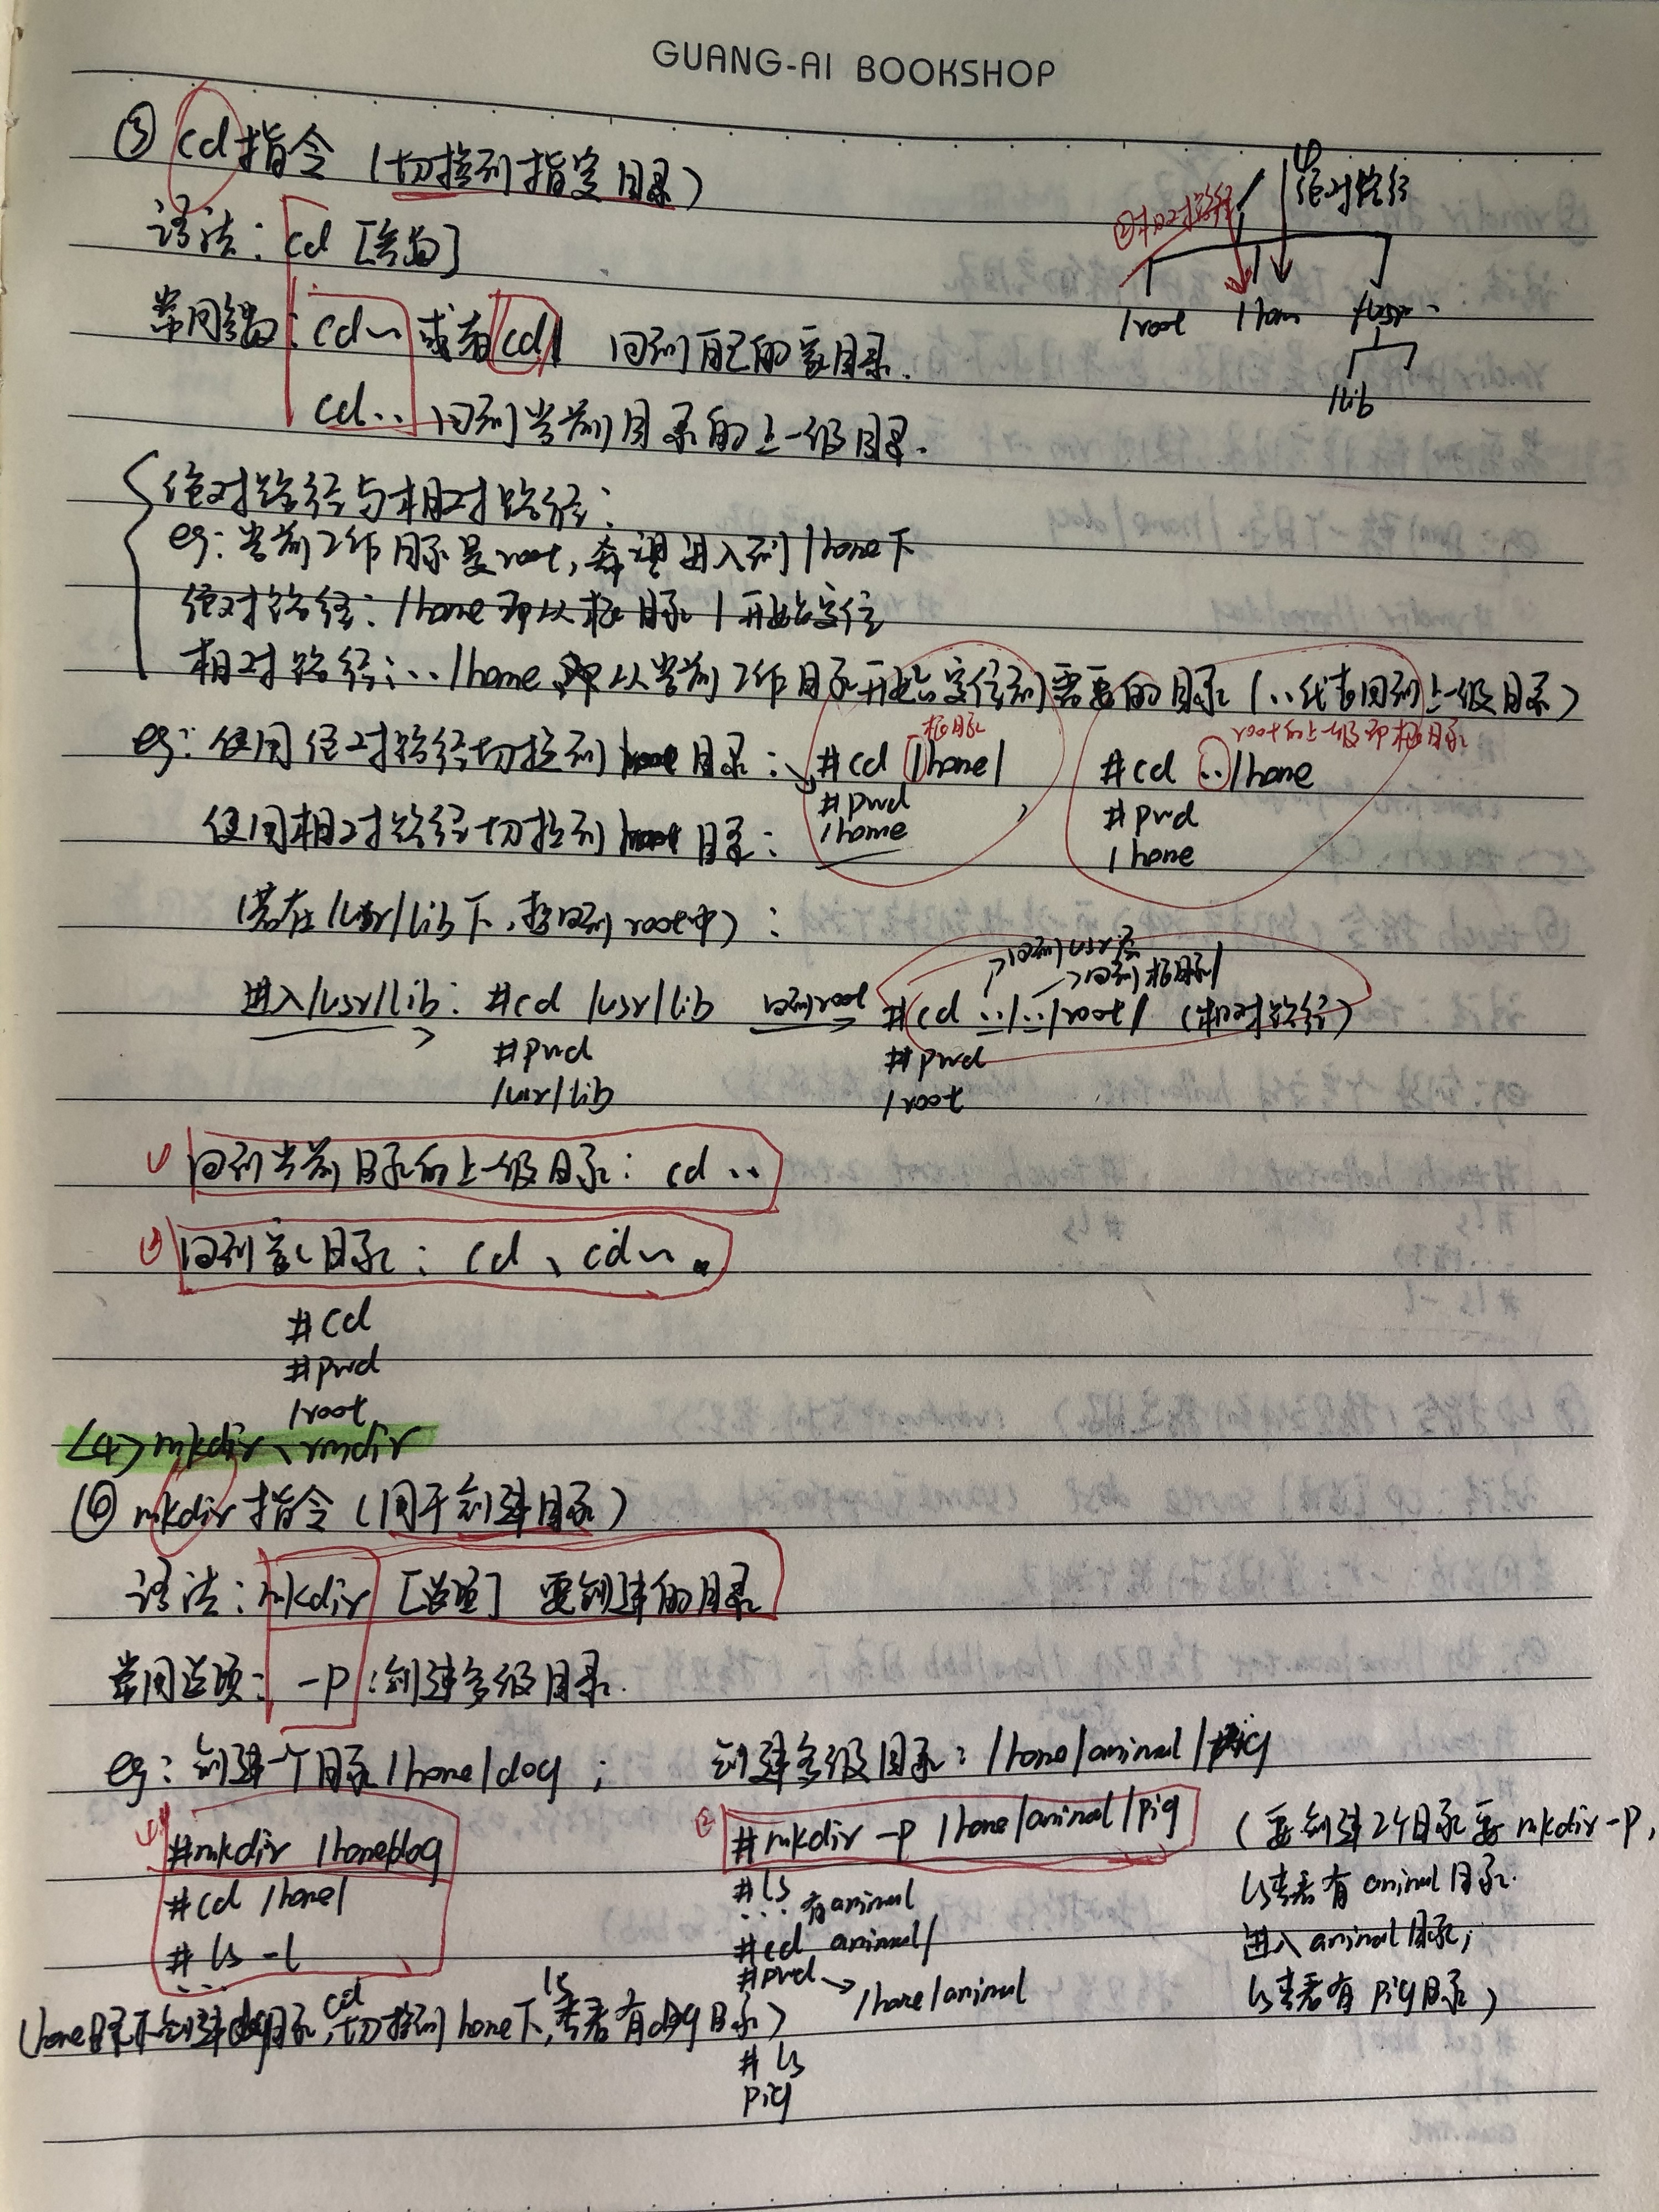 GUANG-AI BOOKSHOP
③ cd指令（切换到指定目录）
语法：cd [参数]
常用参数：cd~ 或者 cd 回到自己的家目录.
cd.. 回到当前目录的上一级目录.
/
①绝对路径
②相对路径
/root /home /usr
/lib
绝对路径与相对路径：
eg：当前工作目录是root，希望进入到/home下
绝对路径：/home 即从根目录/开始定位
相对路径：../home 即从当前工作目录开始定位到需要的目录（..代表回到上一级目录）
根目录
root的上一级即根目录
eg：使用绝对路径切换到home目录： #cd /home/ #cd ../home
#pwd #pwd
使用相对路径切换到home目录： /home /home
（若在/usr/lib下，想回到root中）：
→回到usr层
→回到根目录/
进入/usr/lib：#cd /usr/lib 回到root #cd ../../root/（相对路径）
#pwd #pwd
/usr/lib /root
① 回到当前目录的上一级目录：cd ..
② 回到家目录：cd、cd~
#cd
#pwd
/root
<4> mkdir、rmdir
⑥ mkdir指令（用于创建目录）
语法：mkdir [选项] 要创建的目录
常用选项：-p：创建多级目录.
eg：创建一个目录/home/dog； 创建多级目录：/home/animal/pig
① #mkdir /home/dog ② #mkdir -p /home/animal/pig （要创建2个目录要mkdir -p，
#cd /home/ #ls ls查看有animal目录.
... 有animal
#ls -l #cd animal/ 进入animal目录；
... #pwd → /home/animal ls查看有pig目录）
（home目录下创建dog目录，cd切换到home下，ls查看有dog目录）
#ls
pig